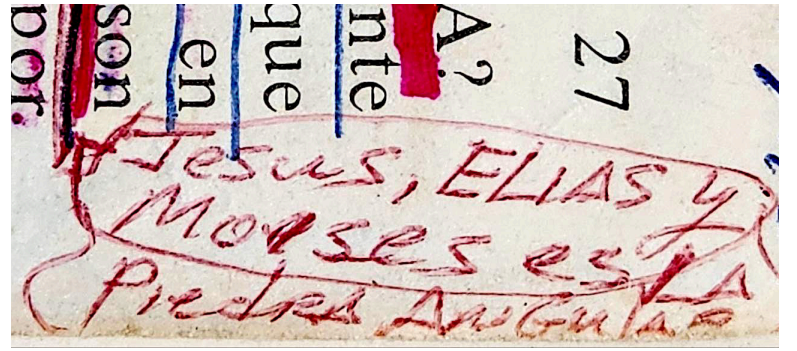 27
A?
nte
que
en
son
por
Jesus, ELIAS y
Moises es LA
Piedra Angular